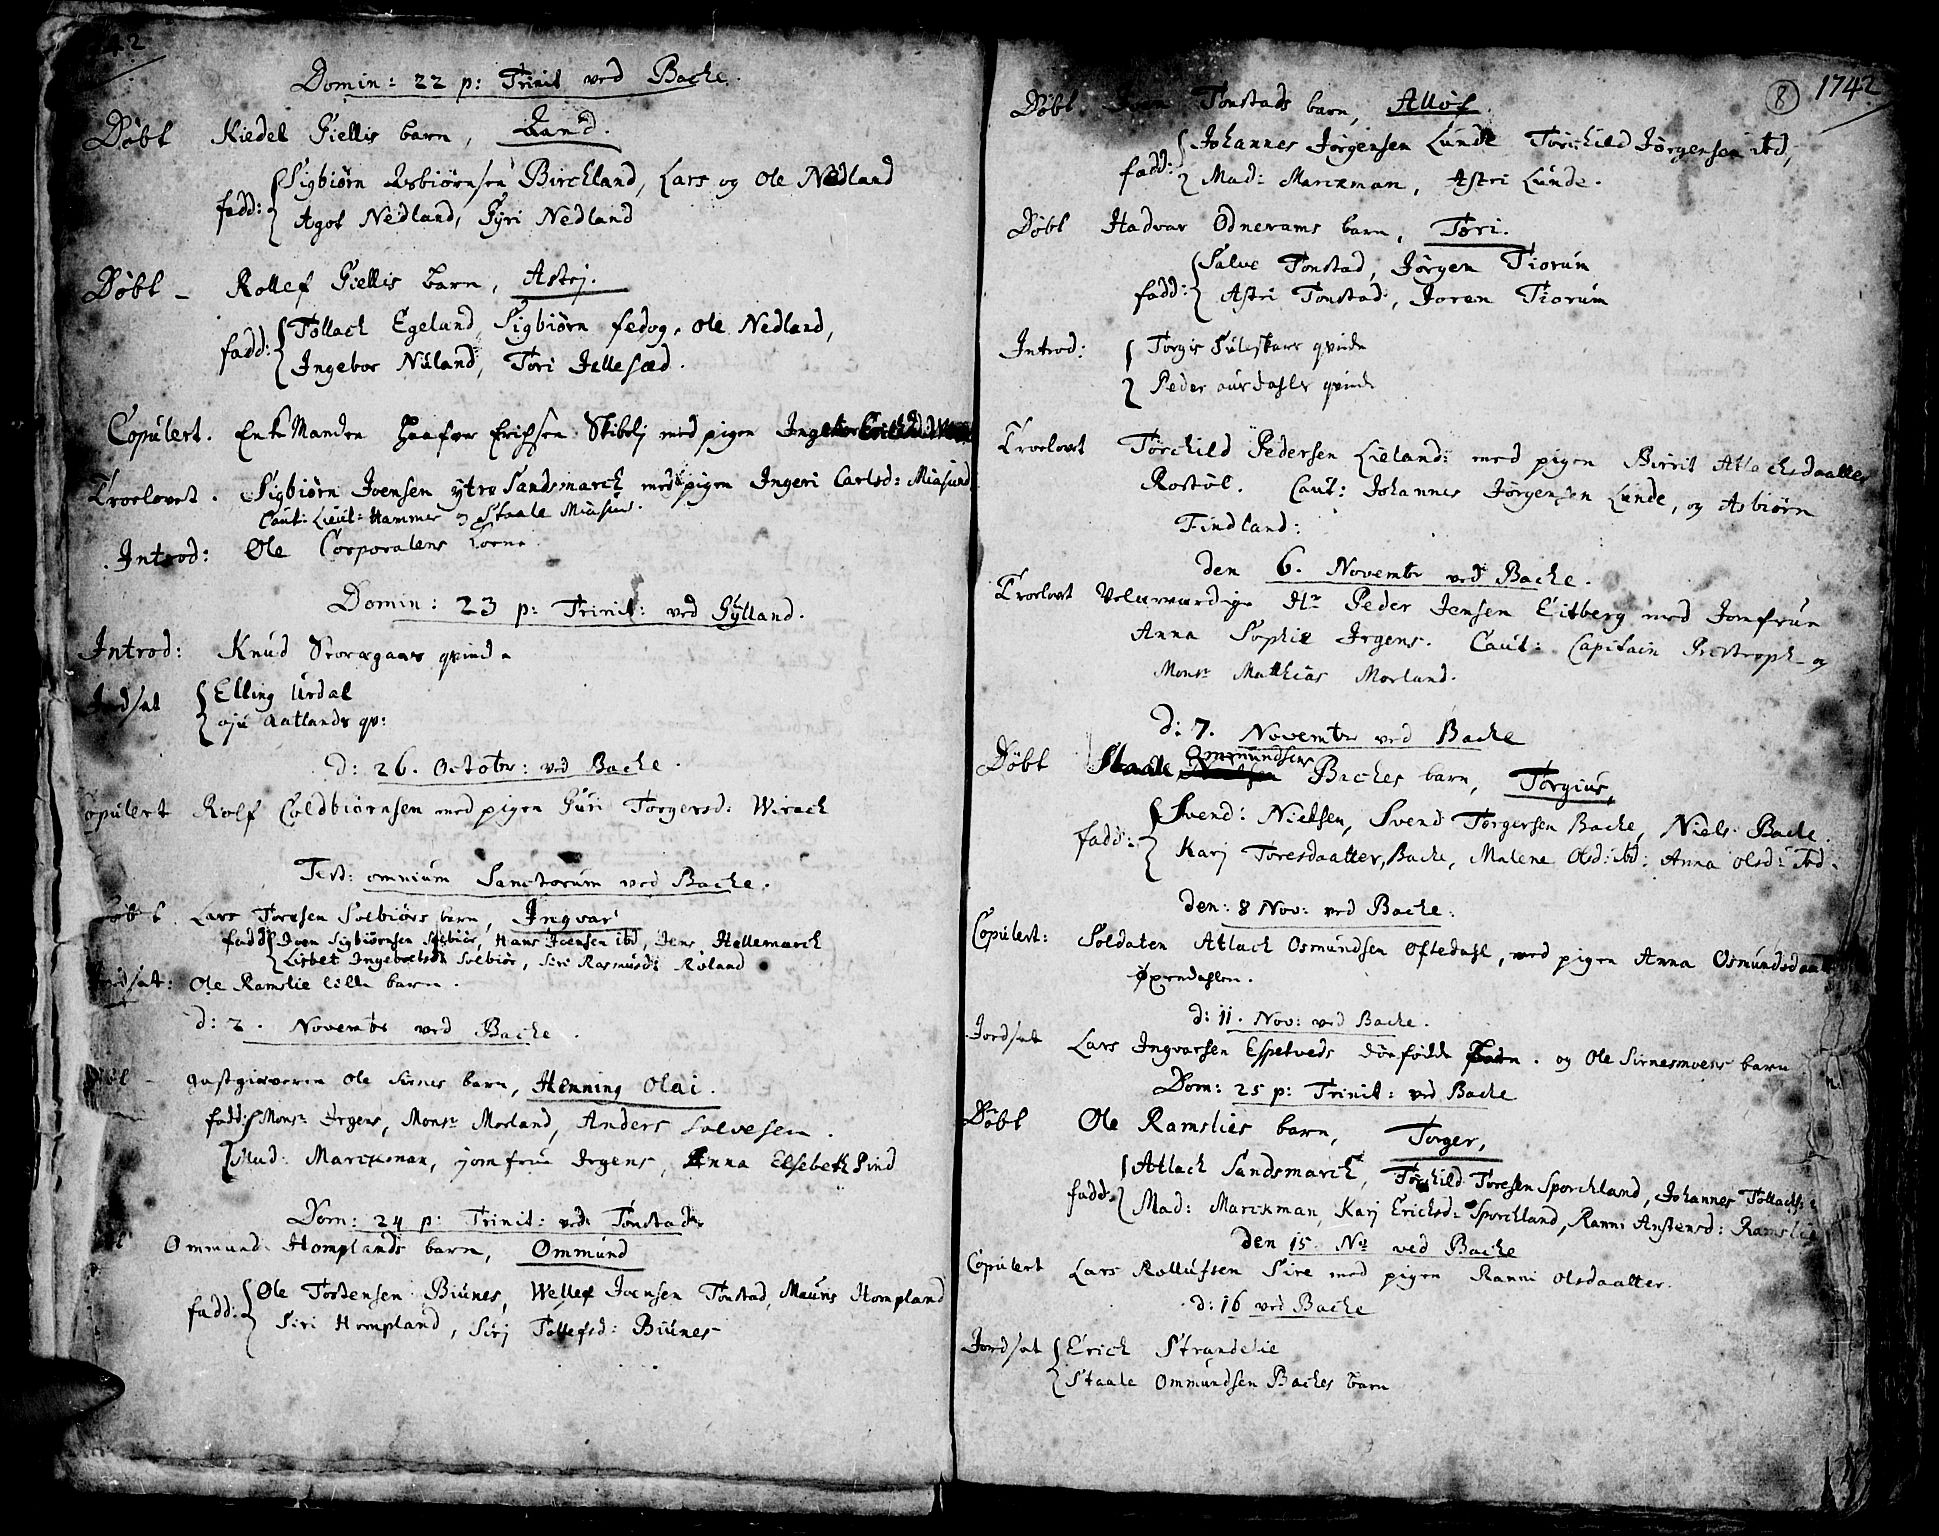 42
Domin: 22 p: Trinit ved Backe.
Døbt Kiedel Giellis barn,
fadd: Sigbiørn Asbiørnsen Birckland, Lars og Ole Nedland
Agot Nedland, Gyri Nedland
Døbt - Rollef Giellis barn, Astrj.
fadd: Tollach Egeland, Sigbiørn fedog, Ole Nedland,
Ingebor Nuland, Tori Jellesæd.
Copulert. Enke Manden Erichsen Skibelj med pigen
Troelovet. Sigbiørn Joensen ytre Sandsmarck med pigen Ingeri Carlsd: Miasund
Caut: Lieut: Hammer og Staale Miasund.
Introd: Ole Corporalens kone
Domin: 23 p: Trinit: ved Gylland.
Introd: Knud Storægaars qvinde
Indsat Elling Urdal
Aatlands qv:
d: 26. Octobr: ved Backe.
Copulert Rolf Coldbiørnsen med pigen Guri Torgersd: Wirack
Fest: omnium Sanctorum ved Backe.
Døbt Lars Toresen Solbiørs barn, Ingvar
fadd: Joen Sigbiørnsen Solbiør, Hans Joensen ibd, Jens Hellemarck
Lisbet Ingebretsdt Solbiør, Siri Rasmusdt Røland
Jordsat: Ole Ramslie lille barn.
d: 2. Novembr ved Backe.
Døbt - gastgiæveren Ole Sirnes barn, Henning Olai.
fadd: Monsr Irgens, Monsr Morland, Anders Salvesen.
Mad: Marckman, jomfru Irgens, Anna Elsebeth Lind
Dom: 24 p: Trinit: ved Tonstad
Ommund Homplands barn, Ommund
fadd: Ole Tostensen Biunes, Wellef Joensen Tonstad, Mauris Hompland
Siri Hompland, Sirj Tollefsd: Biunes
8 1742
Døbt Joen Tonstads barn, Alløf.
fadd: Johannes Jørgensen Lunde Torchild Jørgensen ibd,
Mad: Marckman, Astri Lunde.
Døbt Hadvar Odnerams barn, Tori.
fadd: Salve Tonstad, Jørgen Tiorum
Astri Tonstad, Joren Tiorum
Introd: Torgis Suleskars qvinde
Peder aurdahls qvinde
Troelovt Torchild Pedersen Lieland: med pigen Birrit Atlachsdaatter
Rostøl. Caut: Johannes Jørgensen Lunde, og Asbiørn
Findland:
den 6. Novembr ved Backe.
Troelovt Velærværdige Hr Peder Jensen Eitberg med Jomfrun
Anna Sophie Irgens. Caut: Capitain og
Monsr Matthias Morland.
d: 7. Novembr ved Backe
Døbt Staale Ommundsens Backes barn, Torgius,
fadd: Svend: Nielsen, Svend Torgersen Backe, Niels Backe.
Karj Toresdaatter, Backe, Malene Olsd: ibd: Anna Olsd: ibd.
den: 8 Nov: ved Backe:
Copulert: Soldaten Atlach Osmundsen Oftedahl, med pigen Anna Osmundsdaatter
Øxendahlen.
d: 11. Nov: ved Backe.
Jordsat Lars Ingvarsen Espetveds dødfødde barn. og Ole Sirnesmoens barn
Dom: 25 p: Trinit: ved Backe
Døbt Ole Ramslies barn, Torger,
fadd: Atlach Sandsmarck, Torchild Toresen Sporckland, Johannes Tollachs:
Mad: Marckman, Karj Ericksd: Sporckland, Ranni Anstensd: Ramslie
den 15. Nov ved Backe
Copulert Lars Rollufsen Sire med pigen Ranni Olsdaatter.
d: 16 ved Backe
Jordsat Erich Strandelie
Staale Ommundsen Backes barn